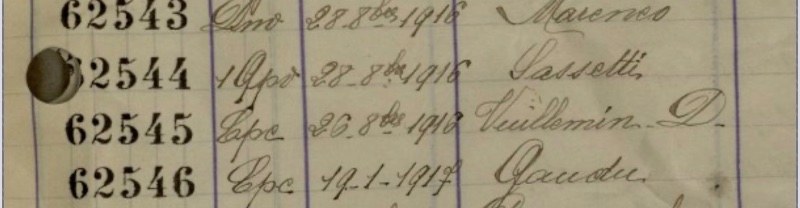 62543 Dno 28-8bre 1916 Marenco
62544 1 Apo 28-8bre 1916 Sassetti
62545 Epc 26-8bre 1916 Vuillemin-D.
62546 Epc 19-1-1917 Gaudu